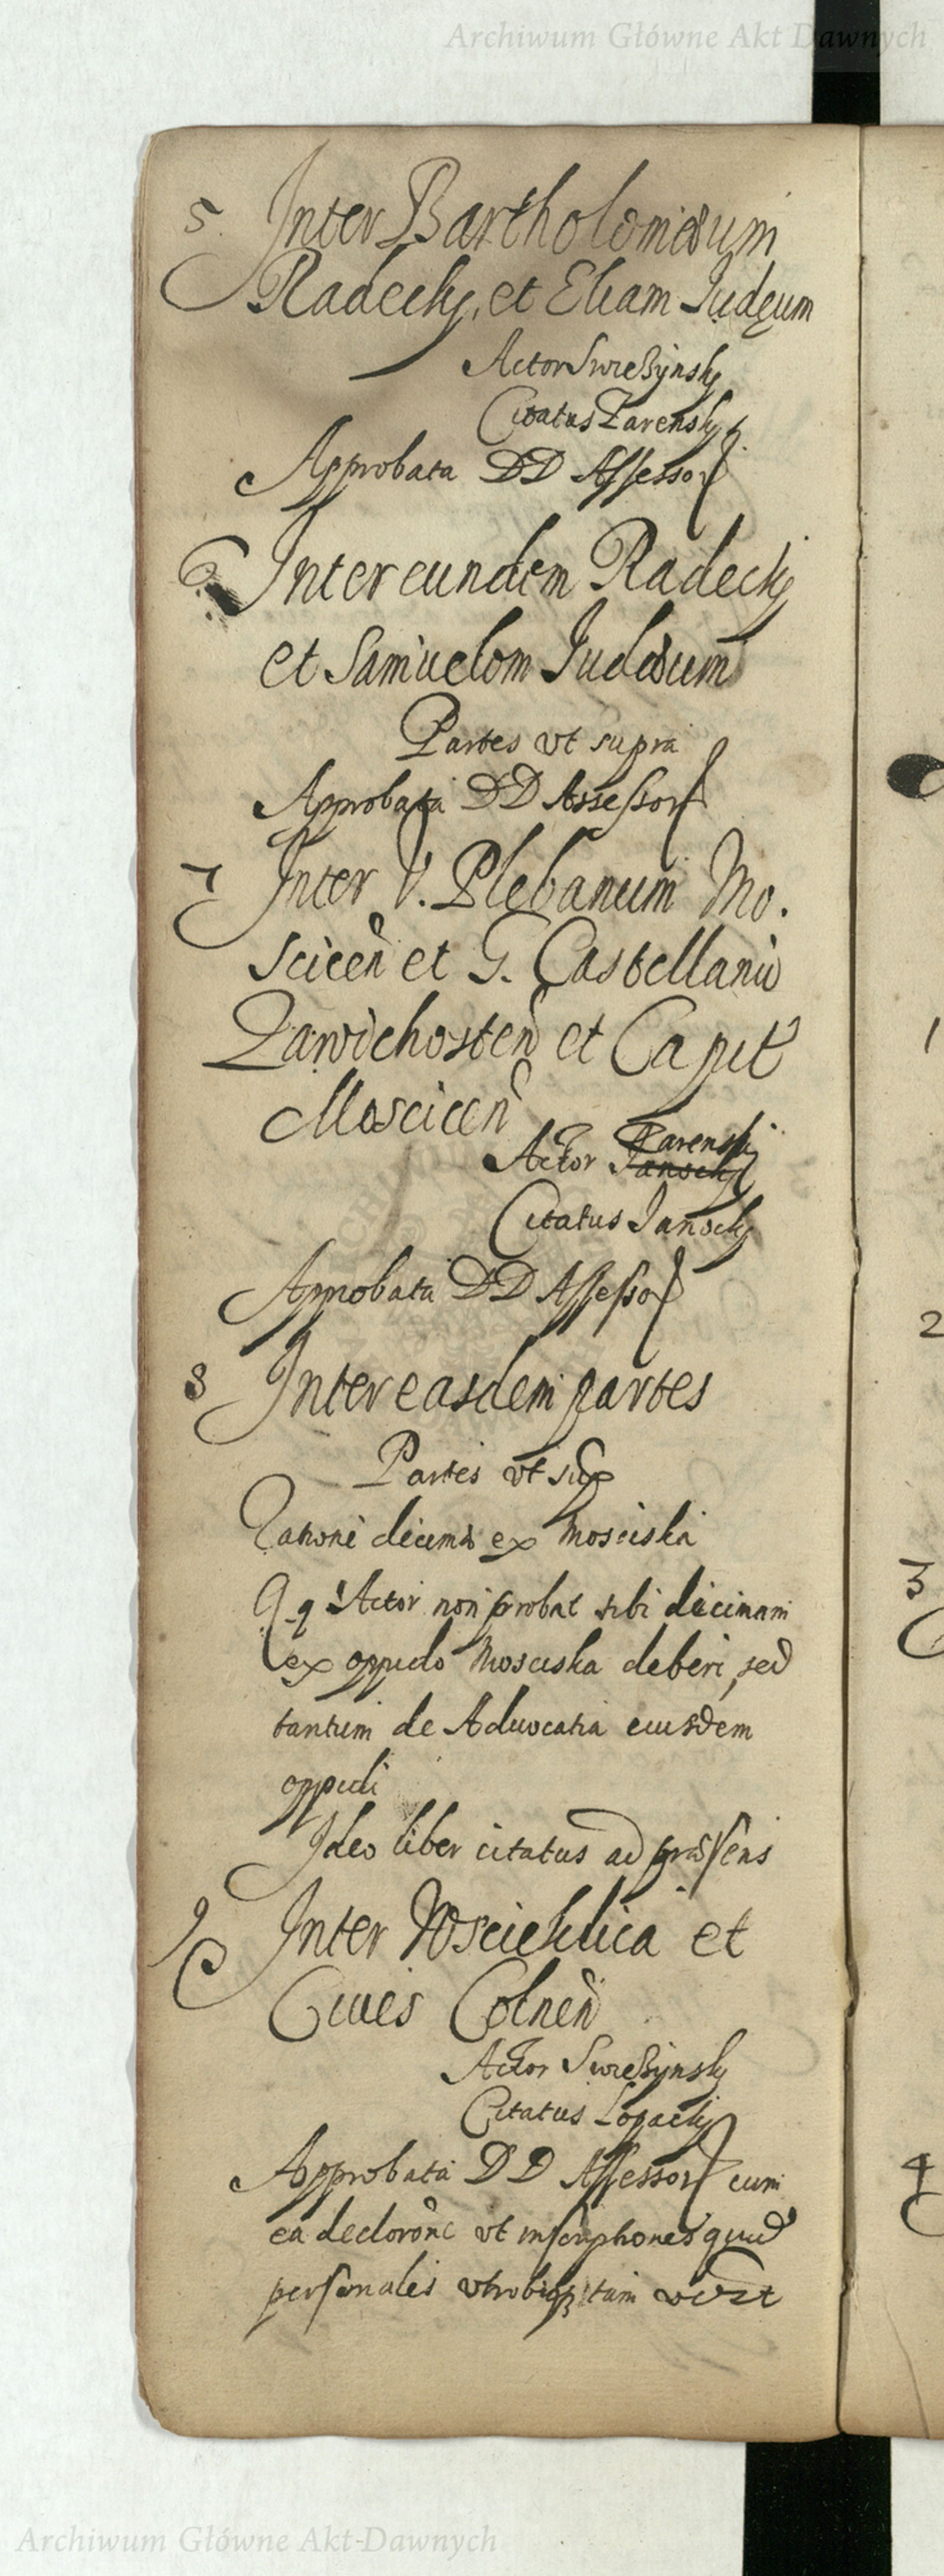 Archiwum Główne Akt Dawnych
5. Inter Bartholomæum
Radecky, et Eliam Judęum
Actor Swieszynsky
Citatus Zarensky
Approbata DD Assessor
6 Inter eundem Radecky
et Samuelem Judæum
Partes vt supra
Approbata DD Assessor
7 Inter V. Plebanum Mo.
scicen et G. Castellanū
Zawichosten et Capit
Moscicen
Zarensky
Actor Janocky
Citatus Janocky
Approbata DD Assessor
8 Inter easdem partes
Partes vt sup
Ratione decimæ ex Mosciska
Actor non probat sibi decimam
ex oppido Mosciska deberi, sed
tantum de Aduocatia eiusdem
oppidi
Ideo liber citatus ad præsens
9 Inter et
Ciues Colnen
Actor Swieszynsky
Citatus Lopacky
Approbata DD Assessor cum
ea vt inscriptiones
personales tam
Archiwum Główne Akt Dawnych